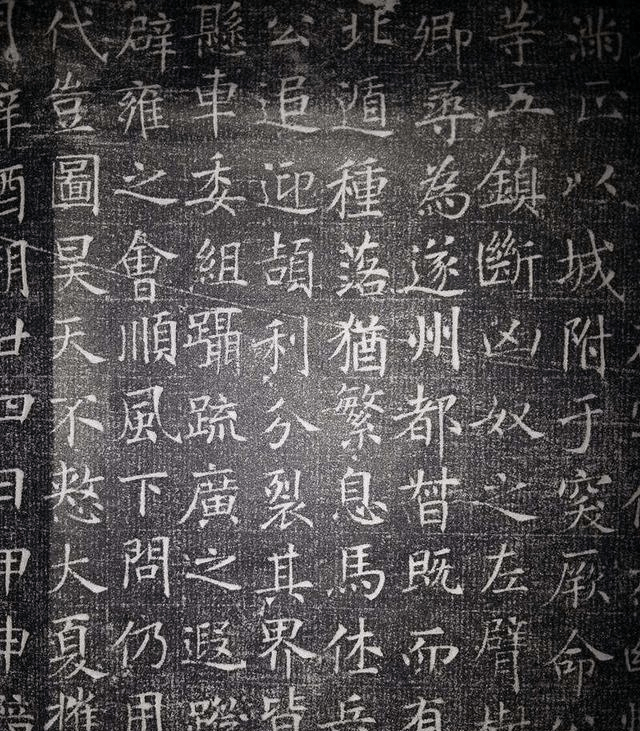 滿以城附于突厥命
等五鎮斷凶奴之左臂樹
卿尋為遂州都督既而有
北遁種落猶繁息馬休兵
公追迎頡利分裂其界皆
懸車委組躡疏廣之遐蹤
辟雍之會順風下問仍用
代豈圖昊天不憗大夏摧
月辛酉朔廿四日甲申陪